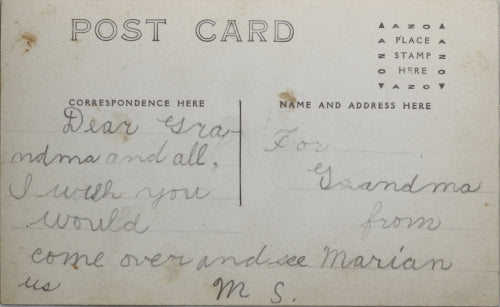 POST CARD
AZO
PLACE
STAMP
HERE
AZO
AZO
AZO
CORRESPONDENCE HERE
Dear Gra-
ndma and all,
I wish you
would
come over and see
us
M S.
NAME AND ADDRESS HERE
For
Grandma
from
Marian